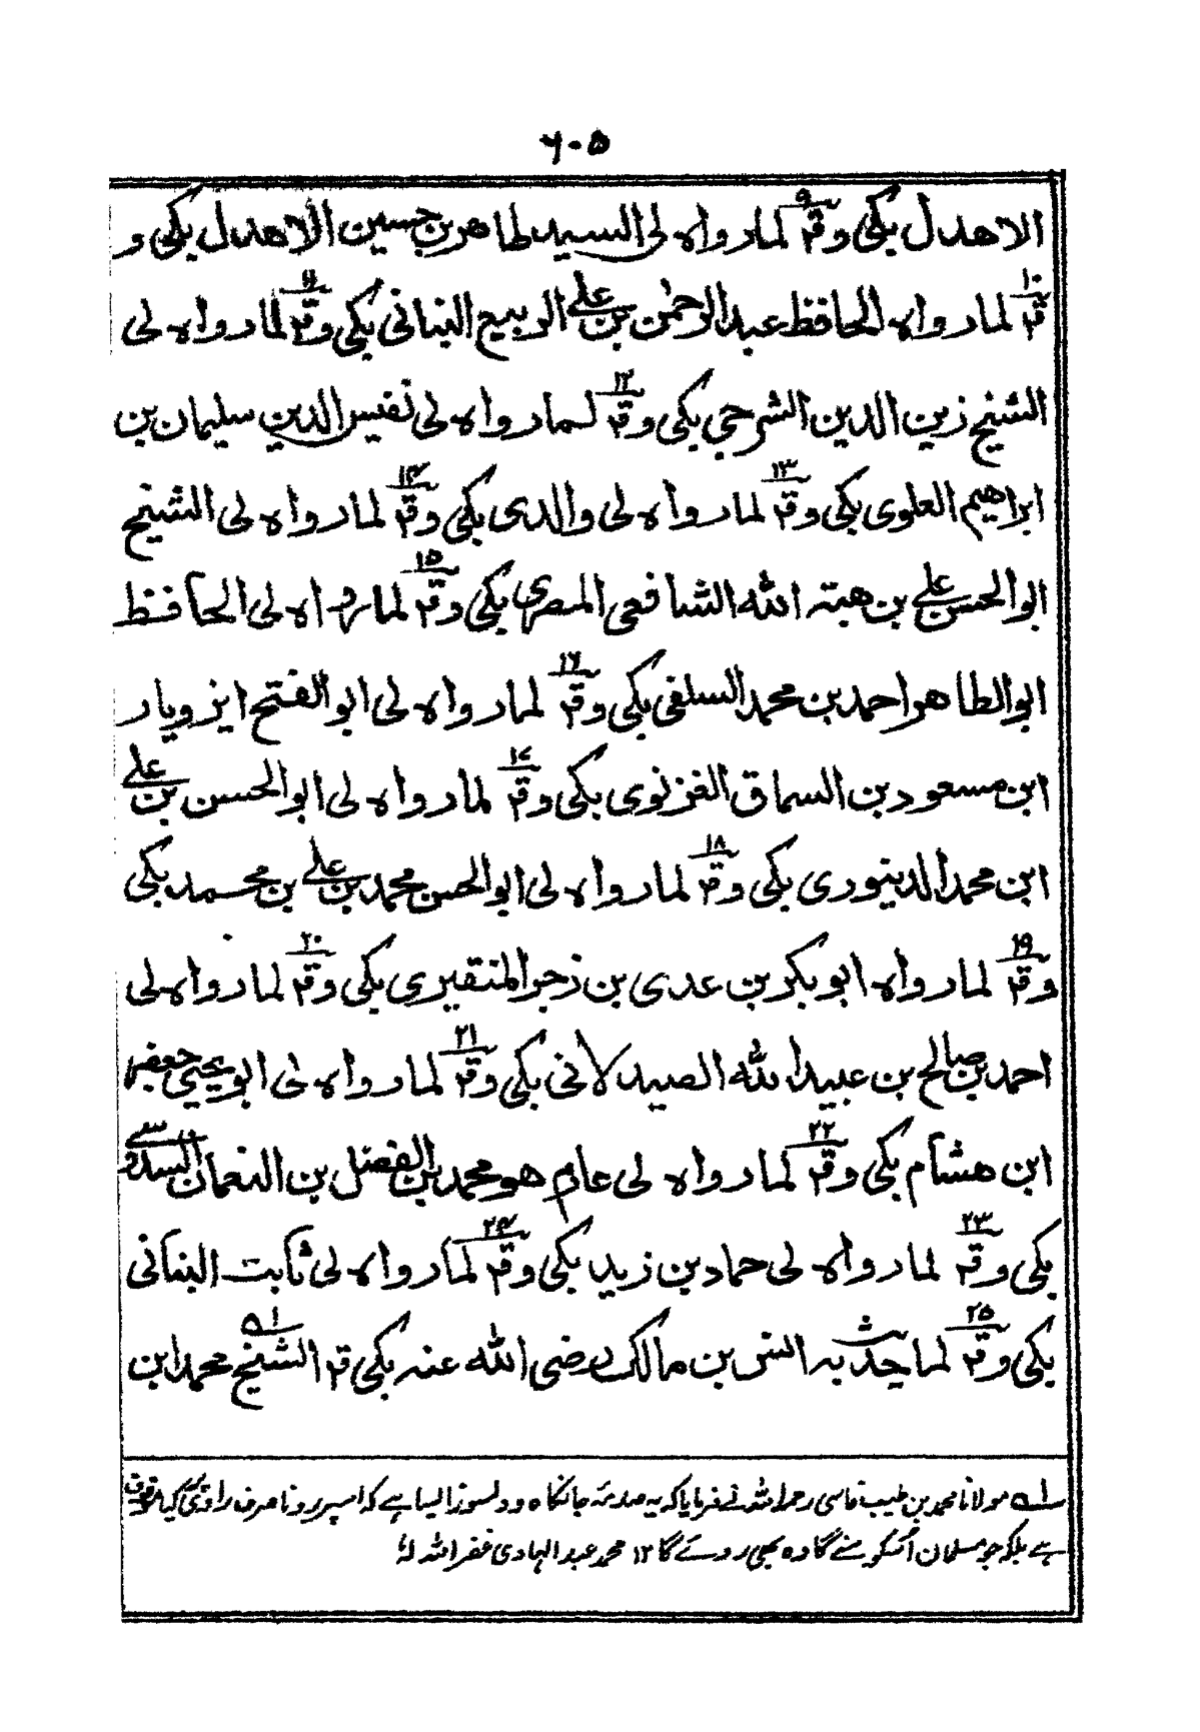 ٦٠٥
الاهدل بكى وقم ٩ لما رواه لى السيد طاهر بن حسين الاهدل بكى و
قم ١٠ لما رواه الحافظ عبد الرحمٰن بن على الربيع اليمانى بكى وقم ١١ لما رواه لى
الشيخ زين الدين الشرجي بكى وقم ١٢ لما رواه لى نفيس الدين سليمان بن
ابراهيم العلوى بكى وقم ١٣ لما رواه لى والدى بكى وقم ١٤ لما رواه لى الشيخ
ابو الحسن على بن هبته الله الشافعى المصرى بكى وقم ١٥ لما رواه لى الحافظ
ابو الطاهر احمد بن محمد السلفى بكى وقم ١٦ لما رواه لى ابو الفتح ايزويار
ابن مسعود بن السماق الغزنوى بكى وقم ١٧ لما رواه لى ابو الحسن بن على
ابن محمد الدينورى بكى وقم ١٨ لما رواه لى ابو الحسن محمد بن على بن محمد بكى
وقم ١٩ لما رواه ابو بكر بن عدى بن زجر المنقيرى بكى وقم ٢٠ لما رواه لى
احمد بن صالح بن عبيد الله الصيدلانى بكى وقم ٢١ لما رواه لى ابو يحيى جعفر
ابن هشام بكى وقم ٢٢ لما رواه لى عارم هو محمد بن الفضل بن النعمان السدوسى
بكى وقم ٢٣ لما رواه لى حماد بن زيد بكى وقم ٢٤ لما رواه لى ثابت البنانى
بكى وقم ٢٥ لما حدث به انس بن مالك رضى الله عنه بكى قم الشيخ ١ه محمد ابن
١ه مولانا محمد بن طيب فاسى رحمہ اللہ نے فرمایا کہ یہ صدمہ جانکاہ و دلسوز ایسا ہے کہ اسپر رونا صرف راوی کیا موقوف
ہے بلکہ جو مسلمان اُسکو سنے گا وہ بھی روئے گا ١٢ محمد عبد الہادی غفر اللہ لہٗ